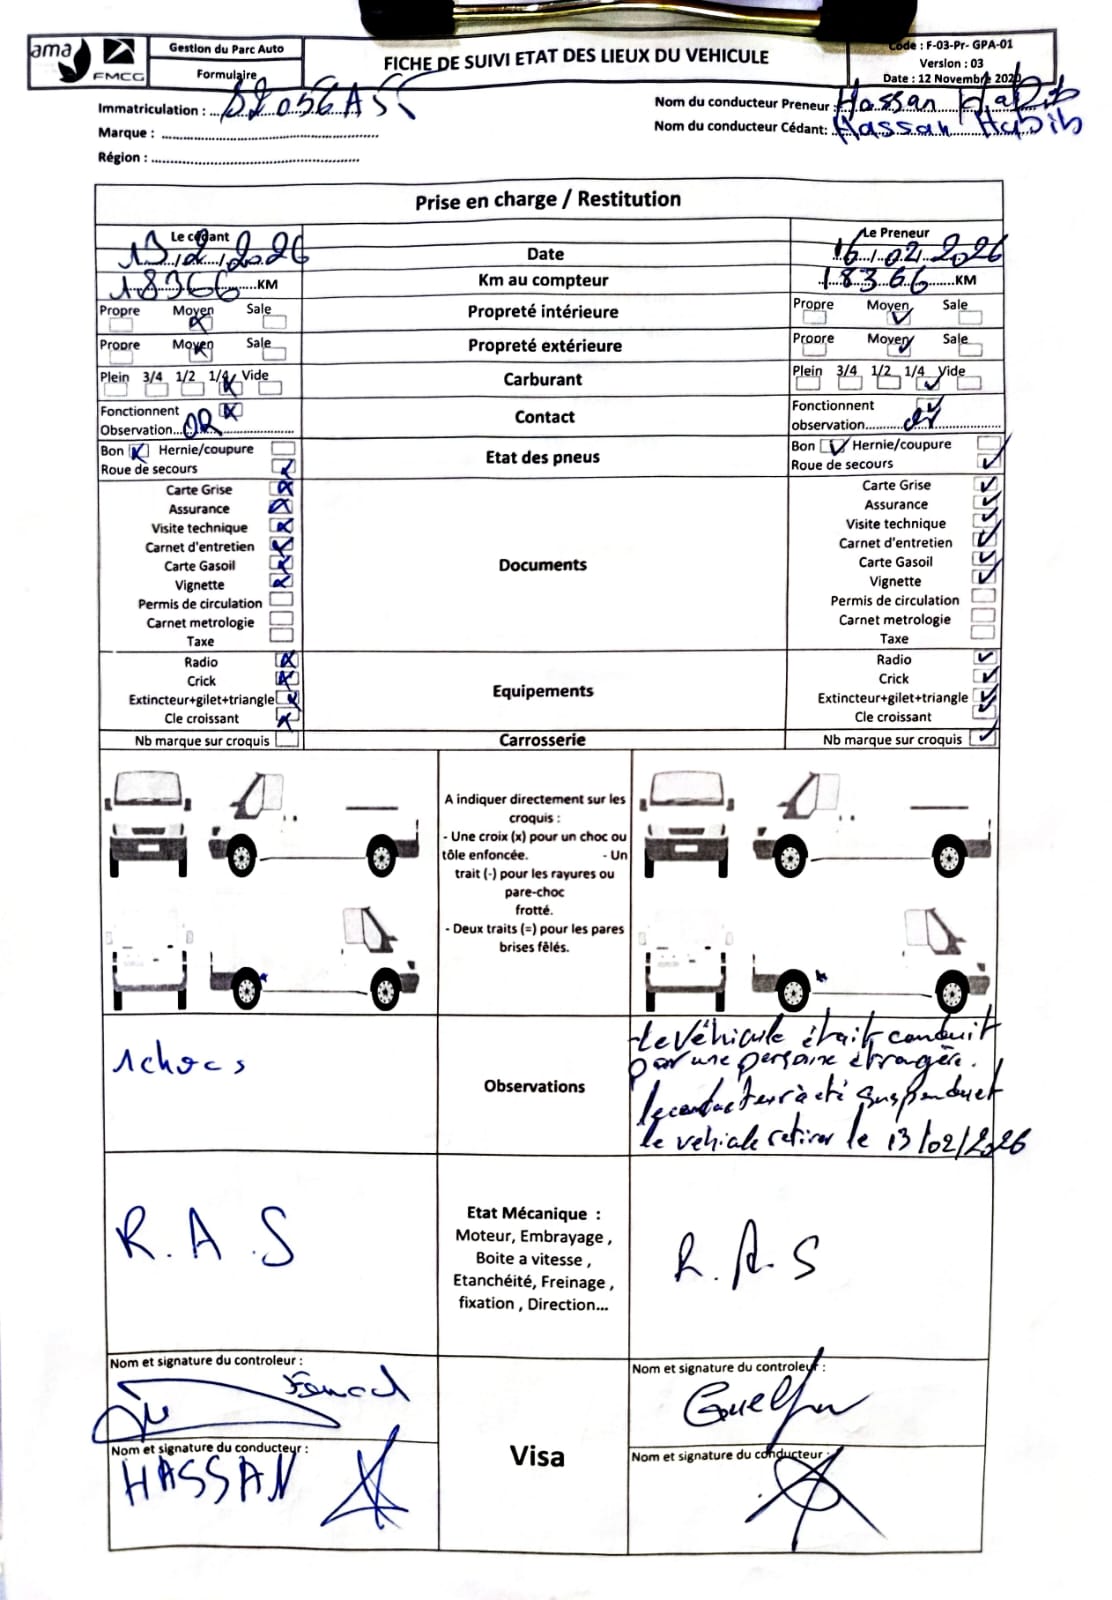 ama
FMCG
Gestion du Parc Auto
Formulaire
FICHE DE SUIVI ETAT DES LIEUX DU VEHICULE
Code : F-03-Pr- GPA-01
Version : 03
Date : 12 Novembre 2020
Immatriculation :
Marque :
Région :
Nom du conducteur Preneur : Hassan Habib
Nom du conducteur Cédant: Hassan Habib
Prise en charge / Restitution
Le cédant
Le Preneur
13/2/2026 Date 16/02/2026
18366 KM Km au compteur 18366 KM
Propre Moyen Sale Propreté intérieure Propre Moyen Sale
Propre Moyen Sale Propreté extérieure Propre Moyen Sale
Plein 3/4 1/2 1/4 Vide Carburant Plein 3/4 1/2 1/4 Vide
Fonctionnent Contact Fonctionnent
Observation... observation...
Bon Hernie/coupure Etat des pneus Bon Hernie/coupure
Roue de secours Roue de secours
Carte Grise Carte Grise
Assurance Assurance
Visite technique Visite technique
Carnet d'entretien Carnet d'entretien
Carte Gasoil Documents Carte Gasoil
Vignette Vignette
Permis de circulation Permis de circulation
Carnet metrologie Carnet metrologie
Taxe Taxe
Radio Radio
Crick Equipements Crick
Extincteur+gilet+triangle Extincteur+gilet+triangle
Cle croissant Cle croissant
Nb marque sur croquis Carrosserie Nb marque sur croquis
A indiquer directement sur les
croquis :
- Une croix (x) pour un choc ou
tôle enfoncée. - Un
trait (-) pour les rayures ou
pare-choc
frotté.
- Deux traits (=) pour les pares
brises fêlés.
1chocs
Observations
-le véhicule était conduit
par une personne étrangère.
le conducteur à été suspendu et
le vehicule retirer le 13/02/2026
R.A.S
Etat Mécanique :
Moteur, Embrayage ,
Boite a vitesse ,
Etanchéité, Freinage ,
fixation , Direction...
R.A.S
Nom et signature du controleur :
Nom et signature du controleur :
Nom et signature du conducteur :
HASSAN
Visa
Nom et signature du conducteur :